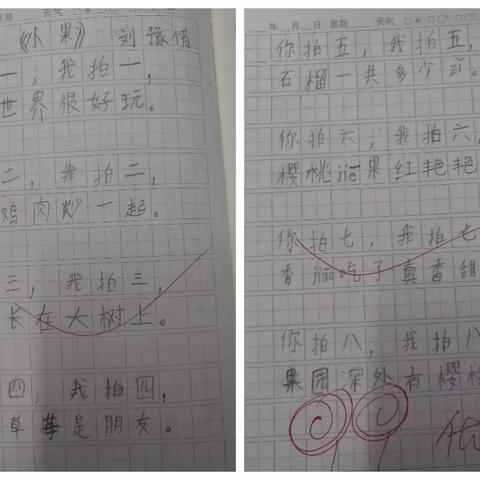 星期 天气
《水果》 刘豫倩
一，我拍一，
世界很好玩。
二，我拍二，
鸡肉炒一起。
三，我拍三，
长在大树上。
四，我拍四，
草莓是朋友。
年 月 日 星期 天气
你拍五，我拍五，
石榴一共多少zǐ。
你拍六，我拍六，
樱桃jiē果红艳艳
你拍七，我拍七
香jiāo吃了真香甜
你拍八，我拍八
果园深处有樱桃
99 优